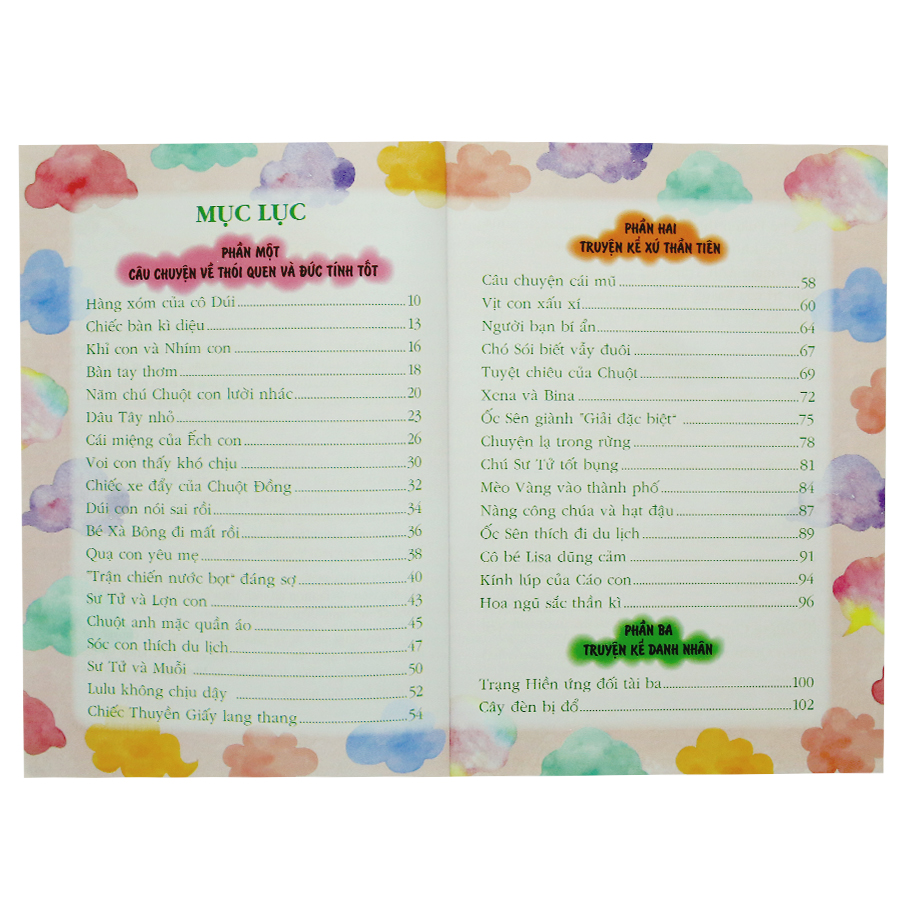 MỤC LỤC
PHẦN MỘT
CÂU CHUYỆN VỀ THÓI QUEN VÀ ĐỨC TÍNH TỐT
Hàng xóm của cô Dúi 10
Chiếc bàn kì diệu 13
Khỉ con và Nhím con 16
Bàn tay thơm 18
Năm chú Chuột con lười nhác 20
Dâu Tây nhỏ 23
Cái miệng của Ếch con 26
Voi con thấy khó chịu 30
Chiếc xe đẩy của Chuột Đồng 32
Dúi con nói sai rồi 34
Bé Xà Bông đi mất rồi 36
Quạ con yêu mẹ 38
"Trận chiến nước bọt" đáng sợ 40
Sư Tử và Lợn con 43
Chuột anh mặc quần áo 45
Sóc con thích du lịch 47
Sư Tử và Muỗi 50
Lulu không chịu dậy 52
Chiếc Thuyền Giấy lang thang 54
PHẦN HAI
TRUYỆN KỂ XỨ THẦN TIÊN
Câu chuyện cái mũ 58
Vịt con xấu xí 60
Người bạn bí ẩn 64
Chó Sói biết vẫy đuôi 67
Tuyệt chiêu của Chuột 69
Xena và Bina 72
Ốc Sên giành "Giải đặc biệt" 75
Chuyện lạ trong rừng 78
Chú Sư Tử tốt bụng 81
Mèo Vàng vào thành phố 84
Nàng công chúa và hạt đậu 87
Ốc Sên thích đi du lịch 89
Cô bé Lisa dũng cảm 91
Kính lúp của Cáo con 94
Hoa ngũ sắc thần kì 96
PHẦN BA
TRUYỆN KỂ DANH NHÂN
Trạng Hiền ứng đối tài ba 100
Cây đèn bị đổ 102